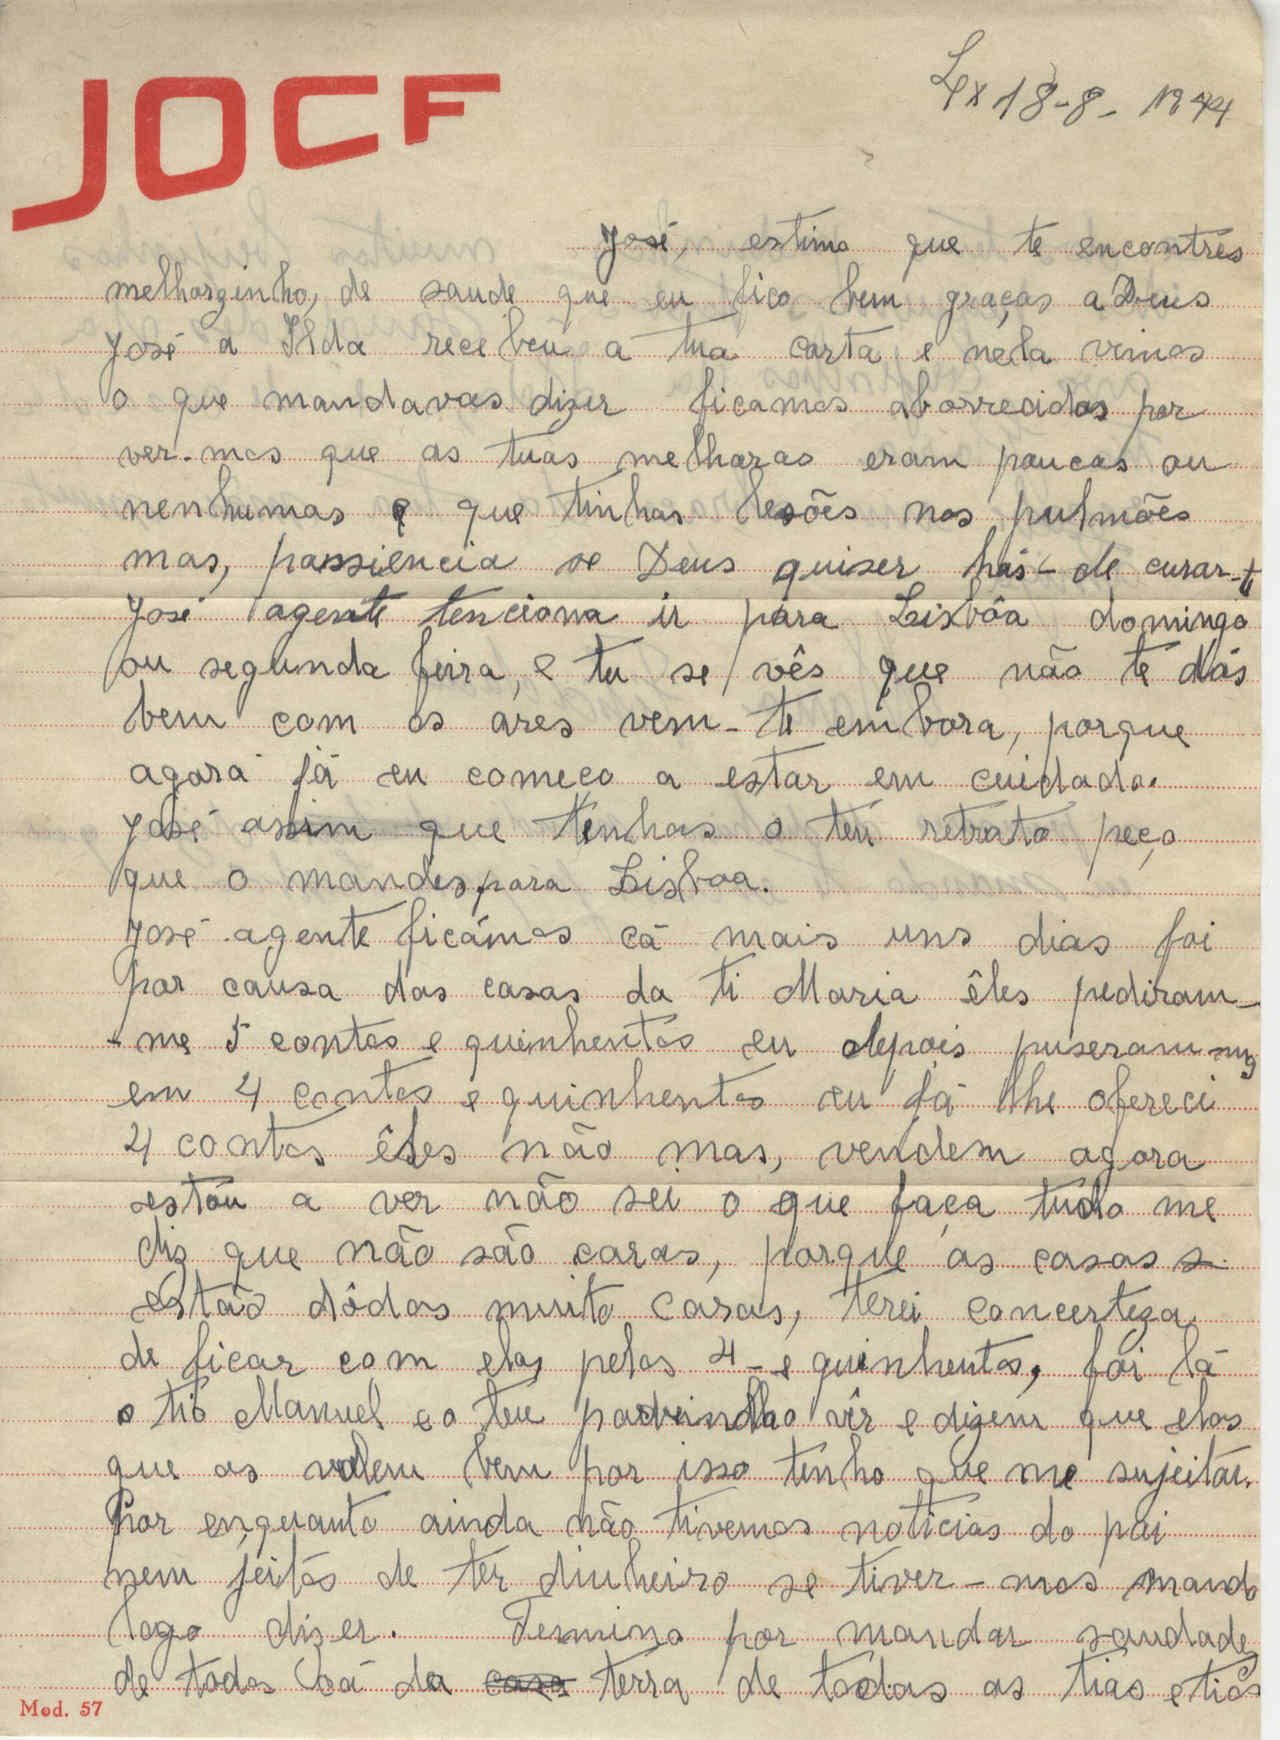 JOCF
Lx 18-8-1944
José, estimo que te encontres
melhorzinho, de saude que eu fico bem graças a Deus
José a Ilda recebeu a tua carta e nela vimos
o que mandavas dizer ficamos aborrecidos por
ver-mos que as tuas melharas eram poucas ou
nenhumas e que tinhas lesões nos pulmões
mas, passiencia se Deus quiser hás-de curar-te
José agente tenciona ir para Lisbôa domingo
ou segunda feira, e tu se vês que não te dás
bem com os ares vem-te embora, porque
agora já eu começo a estar em cuidado.
José assim que tenhas o teu retrato peço
que o mandes para Lisboa.
José agente ficámos cá mais uns dias foi
por causa das casas da ti Maria êles pediram-
-me 5 contos e quinhentos eu depois puseram-mas
em 4 contos e quinhentos eu já lhe ofereci
4 contos êles não mas, vendem agora
estou a ver não sei o que faça tudo me
diz que não são caras, porque as casas
estão dôdas muito caras, terei concerteza
de ficar com elas pelos 4-e quinhentos, foi lá
o tio Manuel e o teu padrinho vêr e dizem que elas
que as valem bem por isso tenho que me sujeitar.
Por enquanto ainda não tivemos noticias do pai
nem jeitos de ter dinheiro se tiver-mos mando
logo dizer. Termino por mandar saudades
de todos cá da casa terra de todas as tias e tios
Mod. 57